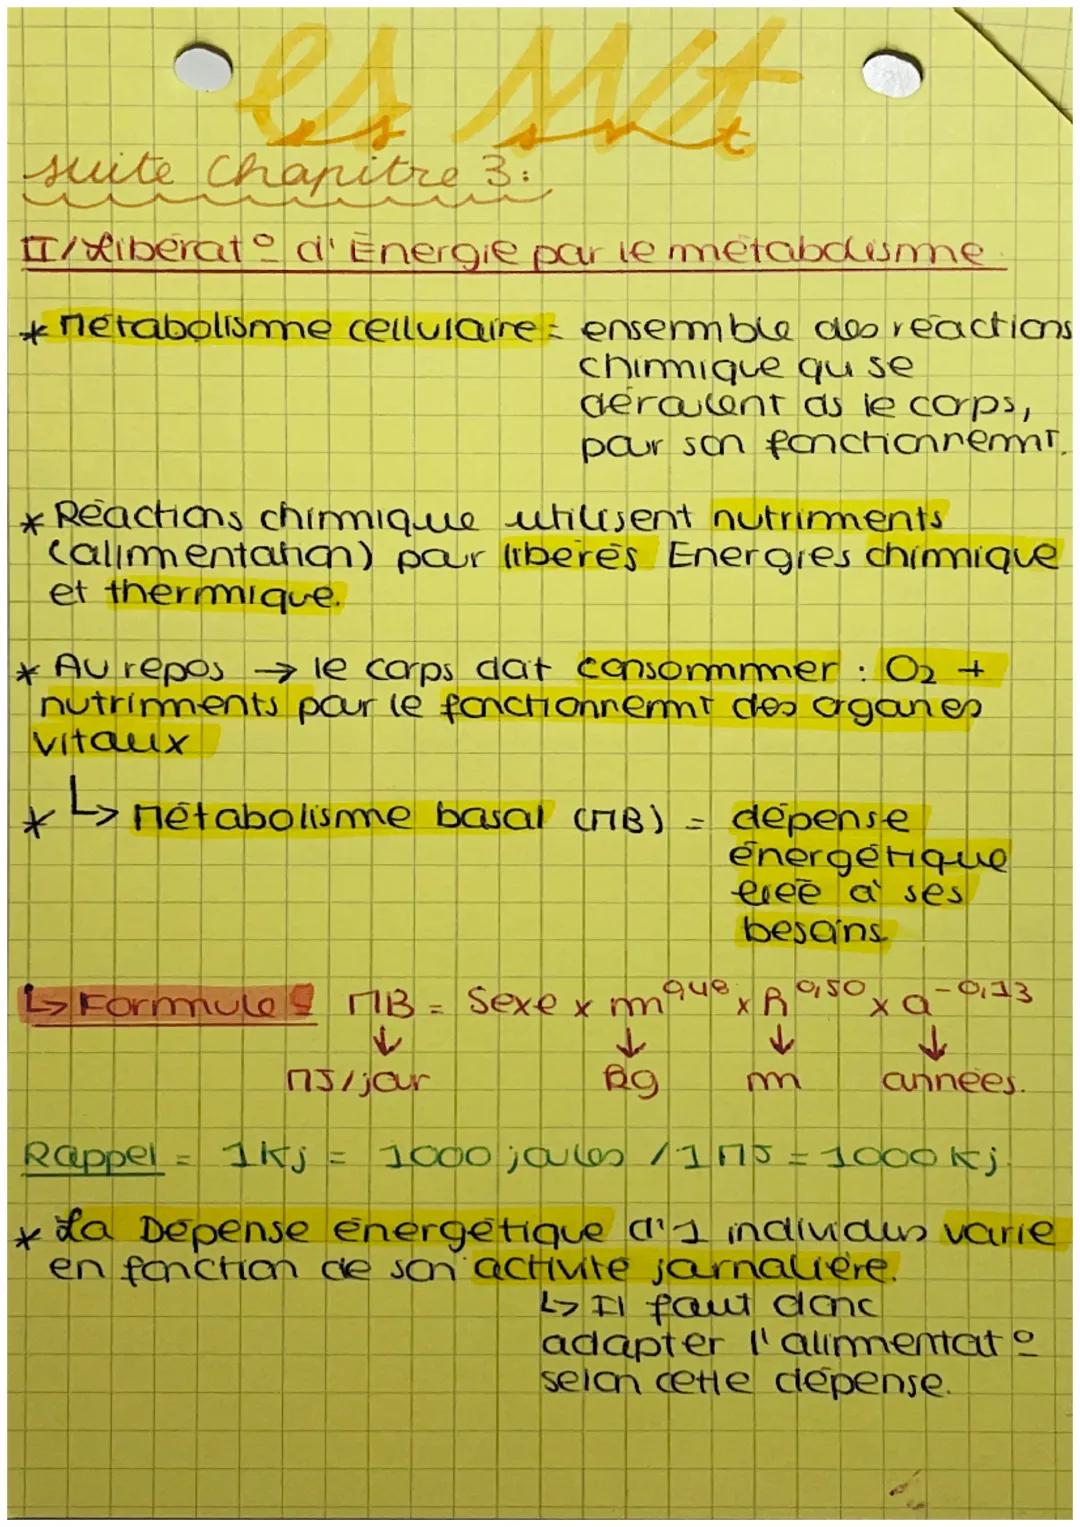 es svt
suite Chapitre 3:
II/ Libérat° d'Énergie par le métabolisme.
* Métabolisme cellulaire = ensemble des réactions
chimique qui se
déroulent ds le corps,
pour son fonctionnemnt.
* Réactions chimique utilisent nutriments
(alimentation) pour libérés Energies chimique
et thermique.
* Au repos → le corps doit consommer : O₂ +
nutriments pour le fonctionnemnt des organes
vitaux
* ↳ Métabolisme basal (MB) = dépense
énergétique
liéé à ses
besoins
↳ Formule : MB = Sexe x m^0,48 x h^0,50 x a^-0,13
↓ ↓ ↓ ↓
MJ/jour kg m années.
Rappel = 1Kj = 1000 joules / 1 MJ = 1000 Kj.
* La Dépense énergétique d'1 individus varie
en fonction de son activité journalière.
↳ Il faut donc
adapter l'alimentat°
selon cette dépense.